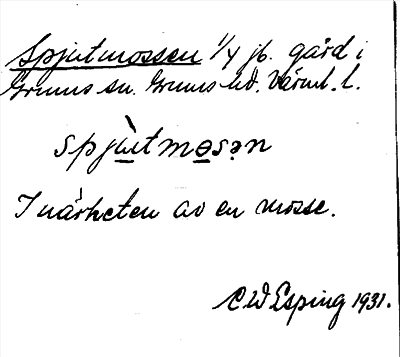 Spjutmossen 1/4 jb. gård i
Grums sn. Grums hd. Värml. l.
spjùtmosən
I närheten av en mosse.
C W Esping 1931.